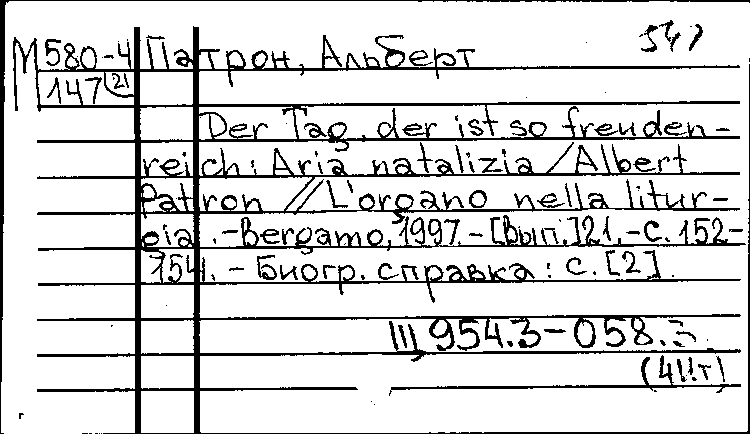 М 580-4 Патрон, Альберт 547
147 (21)
Der Tag, der ist so freuden-
reich: Aria natalizia / Albert
Patron // L'organo nella litur-
gia. - Bergamo, 1997. - [Вып.] 21. - С. 152-
154. - Биогр. справка: с. [2].
Щ 954.3-058.3
(4Ит)